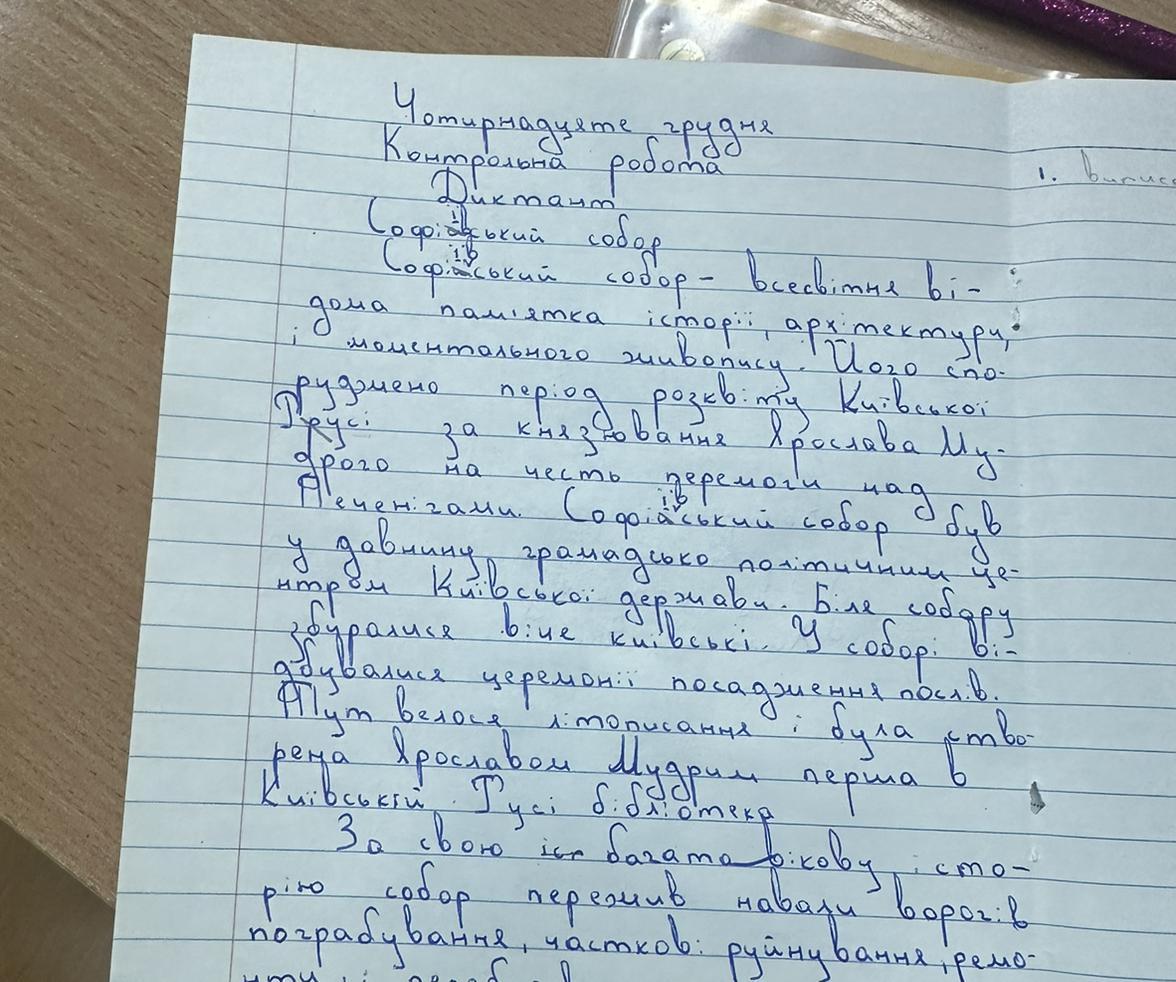 Чотирнадцяте грудня
Контрольна робота
1. Виписа
Диктант
Софіївський собор
Софіївський собор - всесвітня ві-
дома пам'ятка історії, архітектури,
і моментального живопису. Його спо-
руджено період розквіту Київської
Русі за князювання Ярослава Му-
дрого на честь перемоги над
Печенігами. Софіївський собор був
у давнину грамадсько політичним це-
нтром Київської держави. Біля собору
збуралися віче київські. У соборі ві-
дбувалися церемонії посадження послів.
Тут велося літописання і була ство-
рена Ярославом Мудрим перша в
Київській Русі бібліотека
За свою багатавікову істо-
рію собор пережив навали ворогів
пограбування, часткові руйнування, ремо-